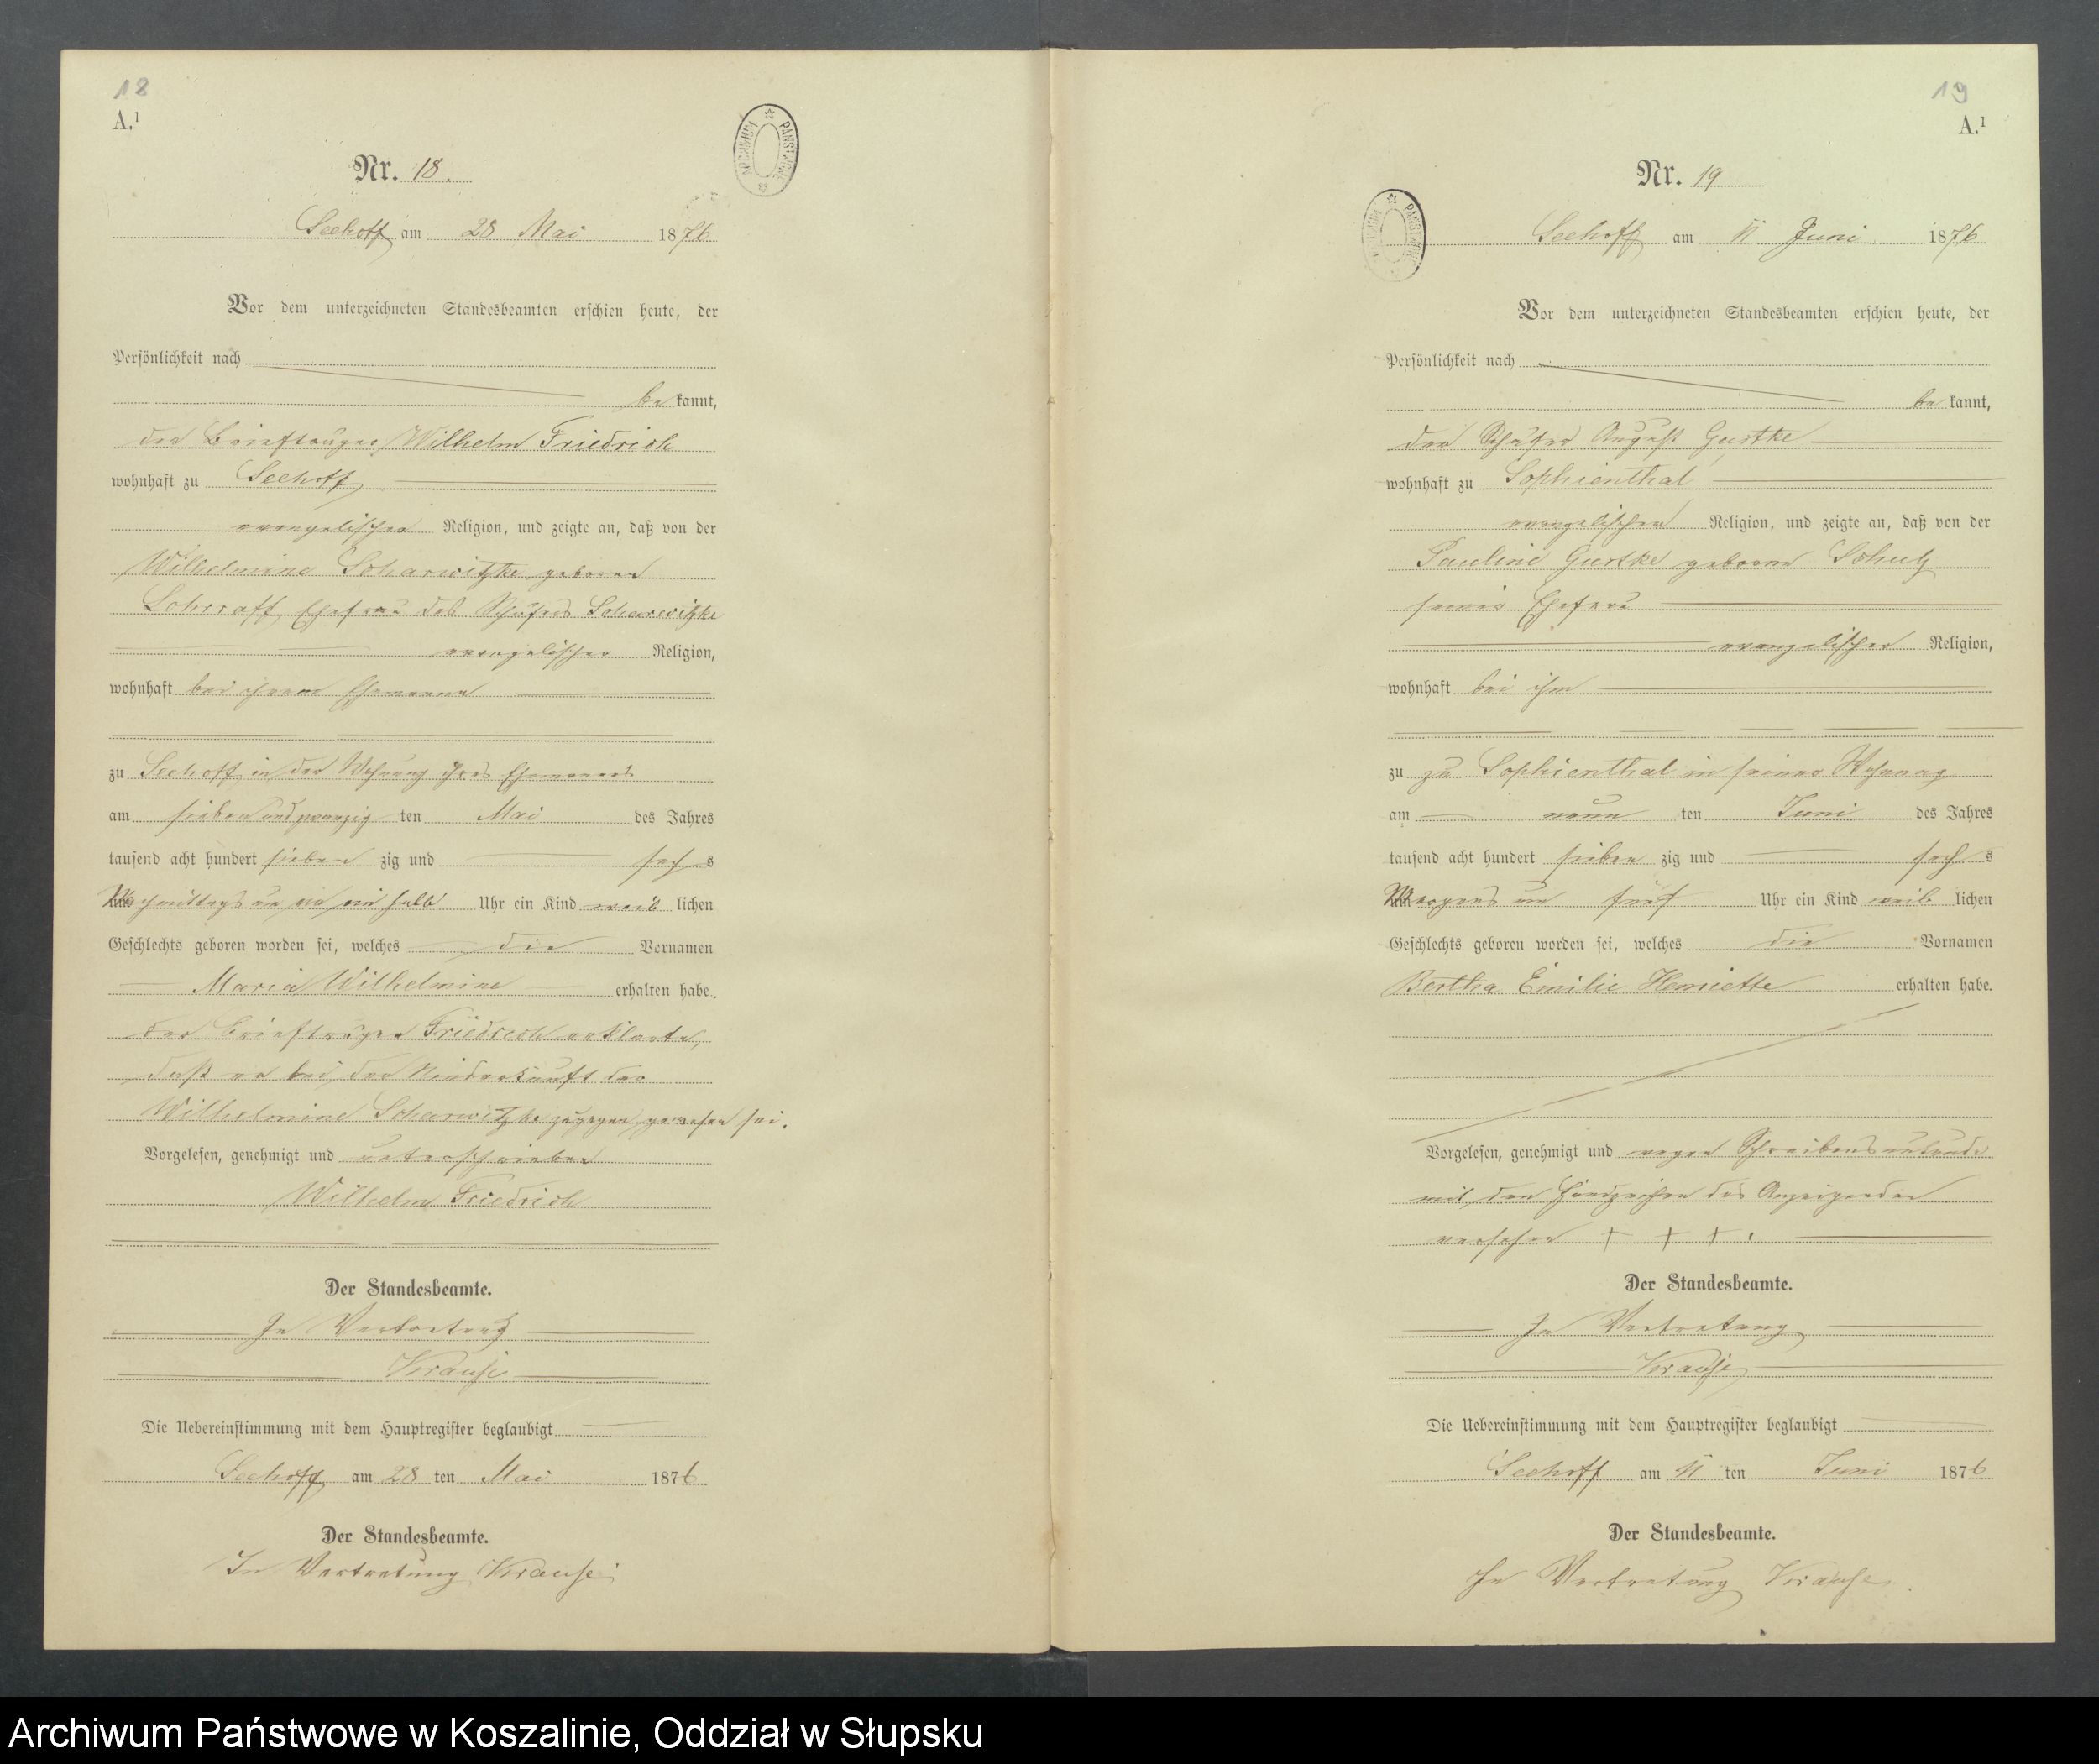 18
A.¹
ARCHIWUM PAŃSTWOWE
Nr. 18.
Seehoff am 28 Mai 1876
Vor dem unterzeichneten Standesbeamten erschien heute, der
Persönlichkeit nach
be kannt,
der Briefträger Wilhelm Friedrich
wohnhaft zu Seehoff
evangelischer Religion, und zeigte an, daß von der
Wilhelmine Scharwitzke geboren
Schraff Ehefrau des Schäfers Scharwitzke
evangelischer Religion,
wohnhaft bei ihrem Ehemanne
zu Seehoff in der Wohnung ihres Ehemannes
am sieben und zwanzig ten Mai des Jahres
tausend acht hundert sieben zig und sech s
Nachmittags um ein halb Uhr ein Kind weib lichen
Geschlechts geboren worden sei, welches die Vornamen
Maria Wilhelmine erhalten habe.
der Briefträger Friedrich erklärte,
daß er bei der Niederkunft der
Wilhelmine Scharwitzke zugegen gewesen sei.
Vorgelesen, genehmigt und unterschrieben
Wilhelm Friedrich
Der Standesbeamte.
In Vertretung
Krause
Die Uebereinstimmung mit dem Hauptregister beglaubigt
Seehoff am 28 ten Mai 1876
Der Standesbeamte.
In Vertretung Krause
19
A.¹
Nr. 19
ARCHIWUM PAŃSTWOWE
Seehoff am 11 Juni 1876
Vor dem unterzeichneten Standesbeamten erschien heute, der
Persönlichkeit nach
be kannt,
der Schäfer August Gurtke
wohnhaft zu Sophienthal
evangelischer Religion, und zeigte an, daß von der
Pauline Gurtke geborne Schulz
seiner Ehefrau
evangelischer Religion,
wohnhaft bei ihm
zu zu Sophienthal in seiner Wohnung
am neun ten Juni des Jahres
tausend acht hundert sieben zig und sech s
Morgens um fünf Uhr ein Kind weib lichen
Geschlechts geboren worden sei, welches die Vornamen
Bertha Emilie Henriette erhalten habe.
Vorgelesen, genehmigt und wegen Schreibensunkunde
mit den Handzeichen des Anzeigenden
versehen + + + .
Der Standesbeamte.
In Vertretung
Krause
Die Uebereinstimmung mit dem Hauptregister beglaubigt
Seehoff am 11 ten Juni 1876
Der Standesbeamte.
In Vertretung Krause.
Archiwum Państwowe w Koszalinie, Oddział w Słupsku